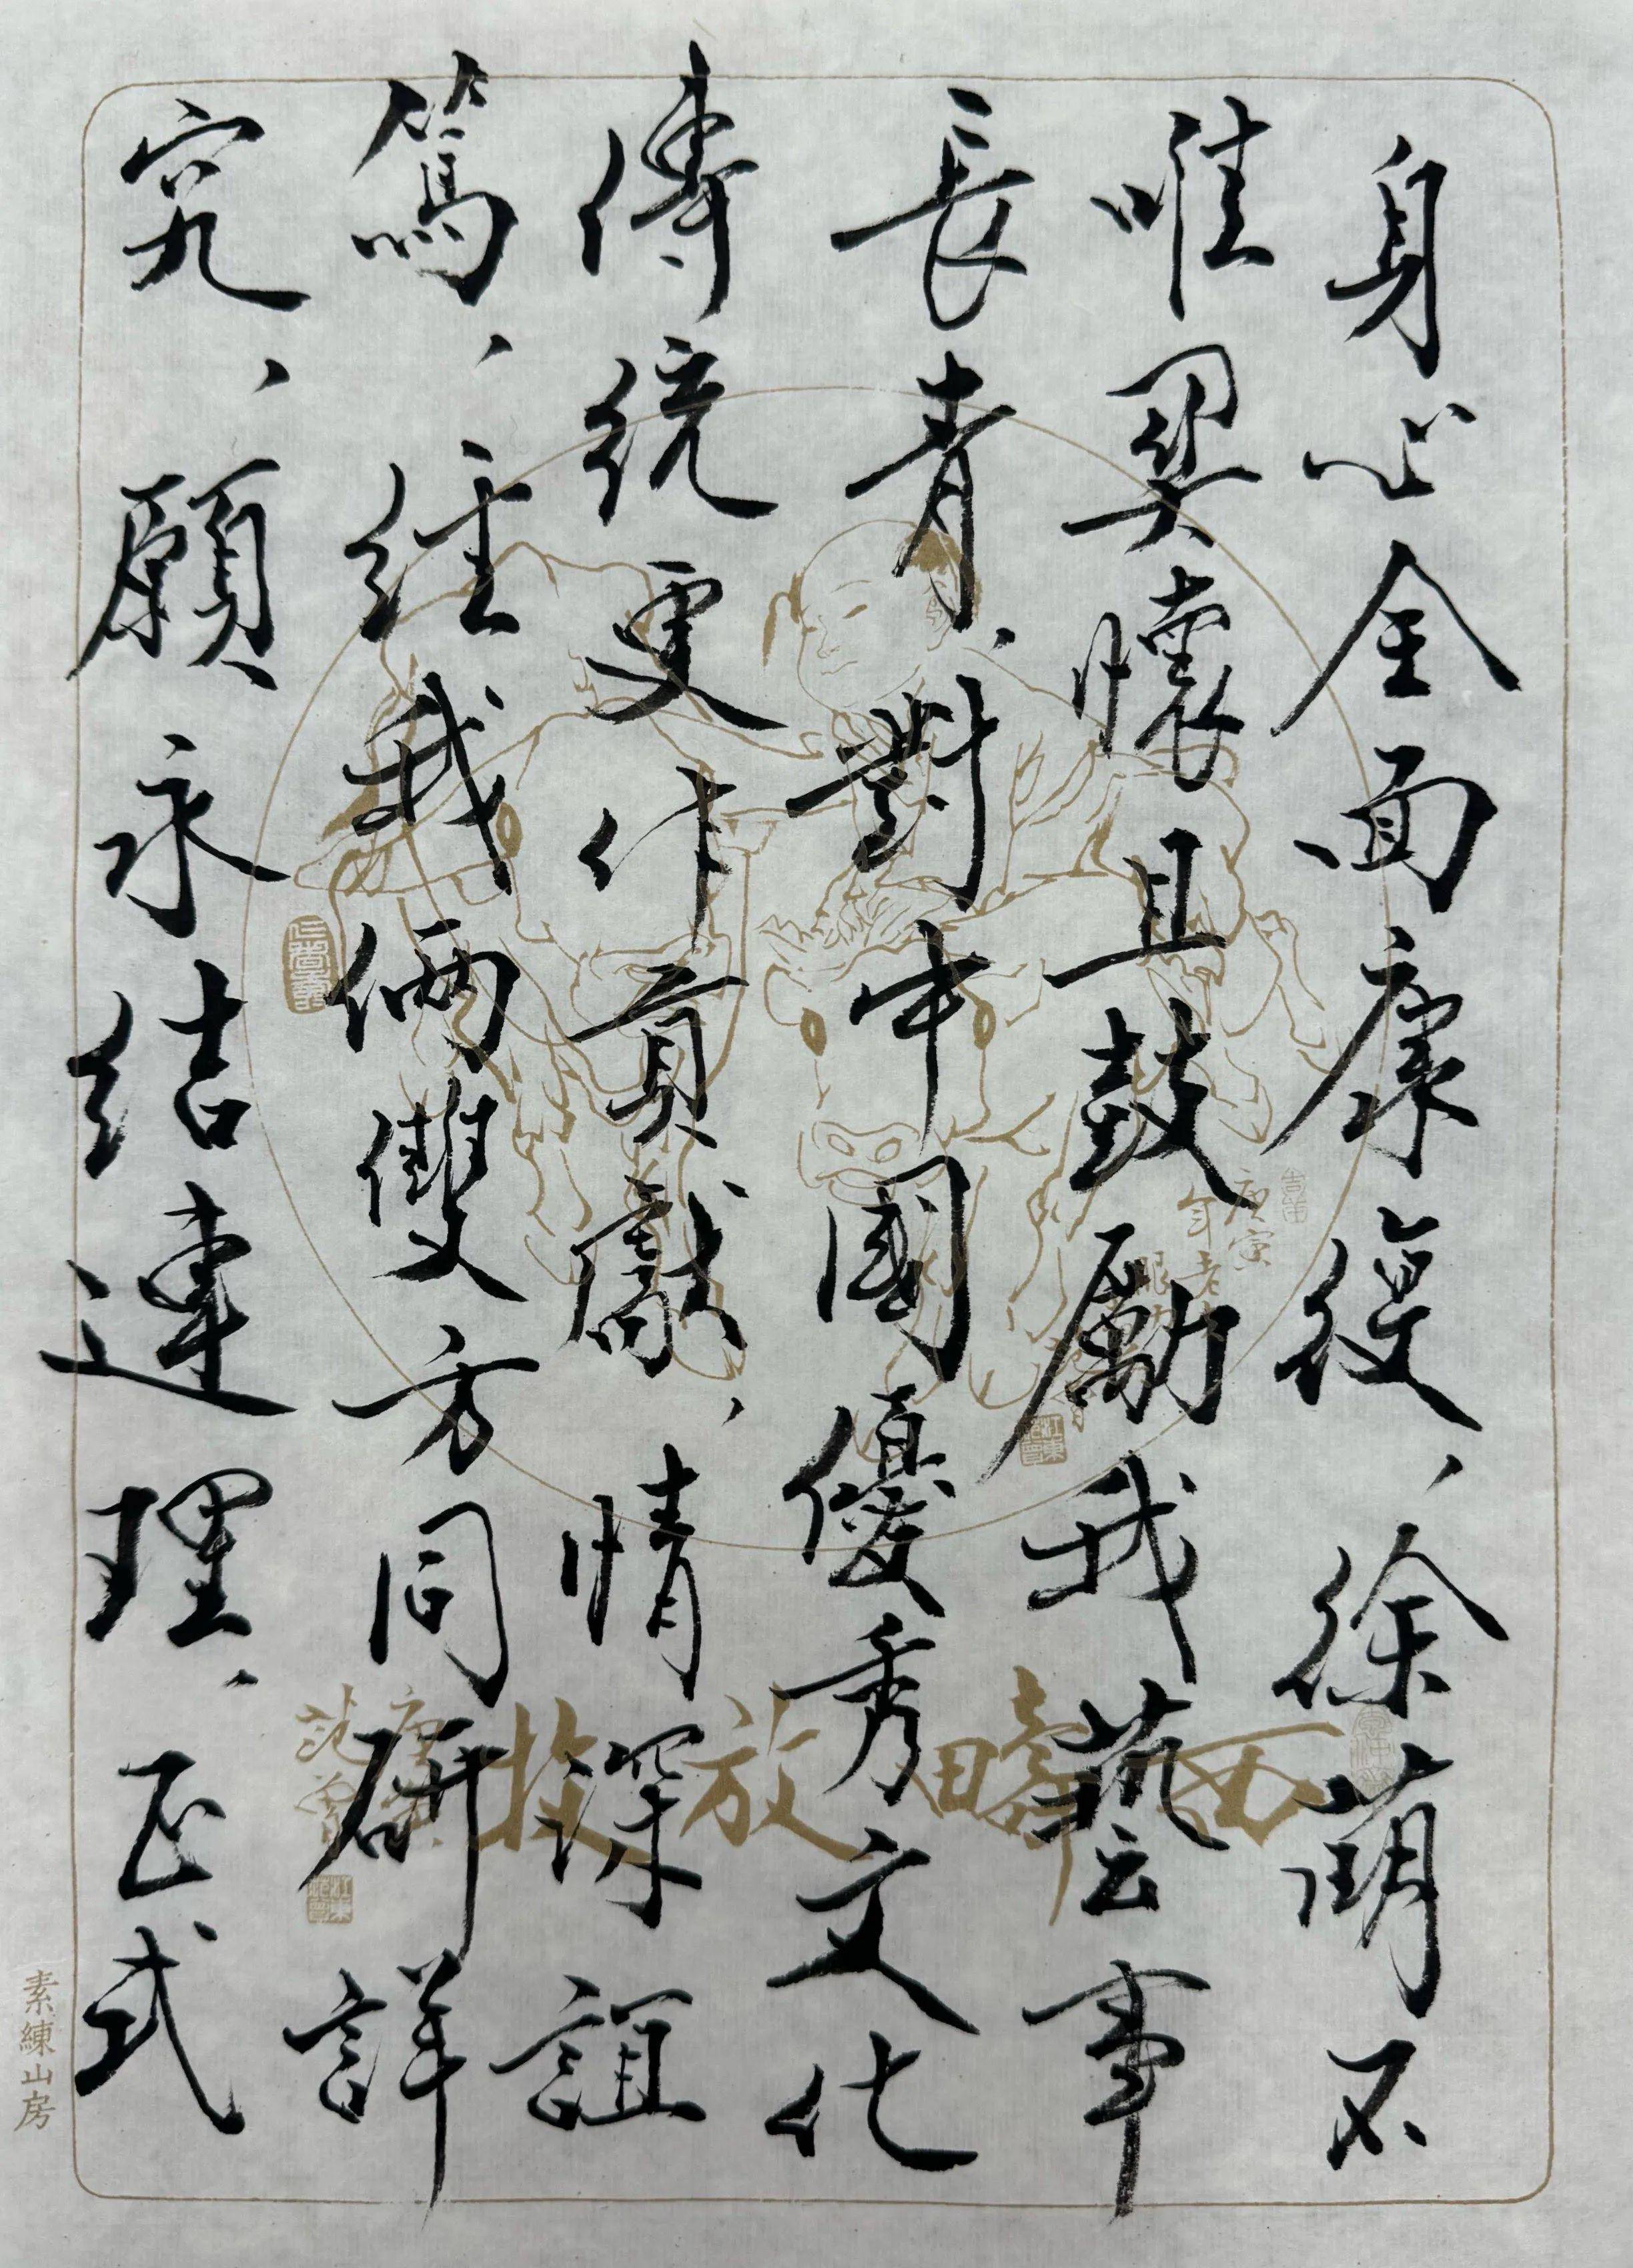 身心全面康復、徐萌不
唯異懷且鼓勵我藝事
長青、對中國優秀文化
傳統更作貢獻、情深誼
篤、經我倆雙方同研詳
究、願永結連理、正式
西疇放牧
庚寅
江東
素練山房